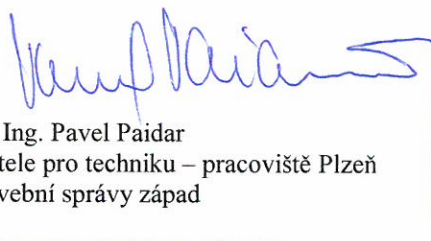 Ing. Pavel Paidar
tele pro techniku – pracoviště Plzeň
vební správy západ